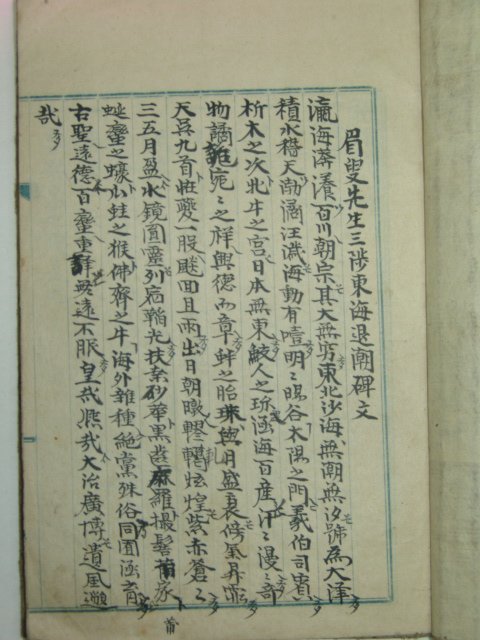 眉叟先生三陟東海退潮碑文
瀛海漭瀁百川朝宗其大無窮東北沙海無潮無汐號為大澤
積水稽天渤潏汪濊海動有噎明〻暘谷太陽之門羲伯司賓
析木之次北牛之宮日本無東鮫人之珎涵海百産汗〻漫〻奇
物譎詭宛〻之祥興德而章蚌之胎珠與月盛衰傍氣昇霏
天吳九首怪夔一股飈回且雨出日朝暾轇轕炫煌紫赤蒼〻
三五月盈水鏡圓靈列宿韜光扶桑砂華黑齒麻羅撮髻莆家
蜒蠻之蠔小蛙之猴佛齊之牛海外雜種絶黨殊俗同囿涵育
古聖遠德百蠻重譯無遠不服皇哉熈哉大治廣博遺風邈
哉
莆